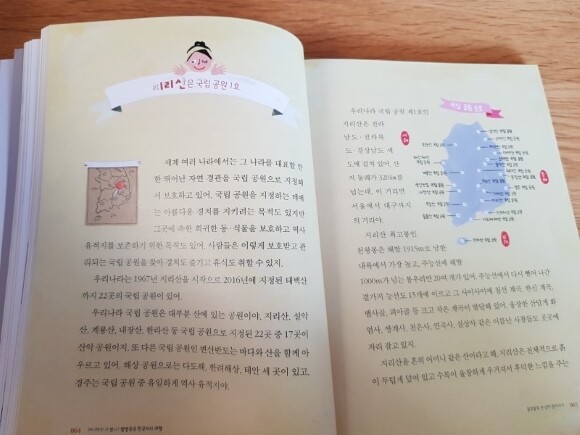 지리산은 국립 공원 1호
세계 여러 나라에서는 그 나라를 대표할 만
한 뛰어난 자연 경관을 국립 공원으로 지정해
서 보호하고 있어. 국립 공원을 지정하는 데에
는 아름다운 경치를 지키려는 목적도 있지만
그곳에 속한 희귀한 동·식물을 보호하고 역사
유적지를 보존하기 위한 목적도 있어. 사람들은 이렇게 보호받고 관
리되는 국립 공원을 찾아 경치도 즐기고 휴식도 취할 수 있지.
우리나라는 1967년 지리산을 시작으로 2016년에 지정된 태백산
까지 22곳의 국립 공원이 있어.
우리나라 국립 공원은 대부분 산에 있는 공원이야. 지리산, 설악
산, 계룡산, 내장산, 한라산 등 국립 공원으로 지정된 22곳 중 17곳이
산악 공원이지. 또 다른 국립 공원인 변산반도는 바다와 산을 함께 아
우르고 있어. 해상 공원으로는 다도해, 한려해상, 태안 세 곳이 있고,
경주는 국립 공원 중 유일하게 역사 유적지야.
064
우리나라 국립 공원 제1호인
지리산은 전라
남도·전라북
도·경상남도 세
도에 걸쳐 있어. 산
지 둘레가 320km를
넘는데, 이 거리면
서울에서 대구까지
의 거리야.
지리산 최고봉인
천왕봉은 해발 1915m로 남한
내륙에서 가장 높고, 주능선에 해발
1000m가 넘는 봉우리만 20여 개가 있어. 주능선에서 다시 뻗어 나간
곁가지 능선도 15개에 이르고 그 사이사이에 칠선 계곡, 한신 계곡,
뱀사골, 피아골 등 크고 작은 계곡이 발달해 있어. 웅장한 산답게 화
엄사, 쌍계사, 천은사, 연곡사, 실상사 같은 이름난 사찰들도 곳곳에
자리 잡고 있지.
지리산을 흔히 어머니 같은 산이라고 해. 지리산은 전체적으로 흙
이 두텁게 덮여 있고 수목이 울창하게 우거져서 푸근한 느낌을 주는